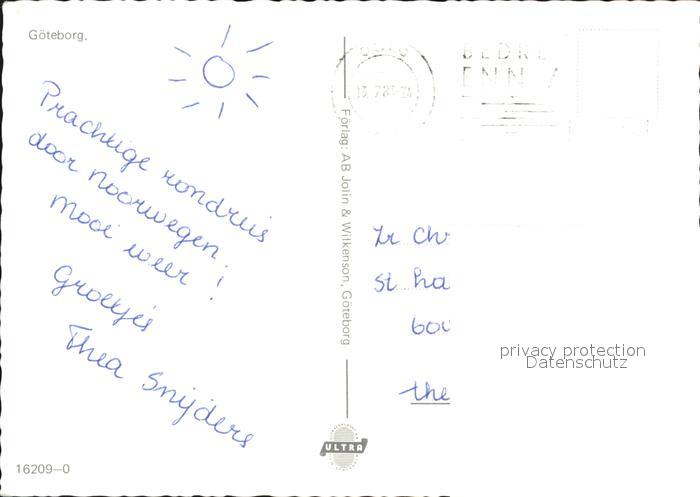 Göteborg.
Prachtige rondreis
door noorwegen
mooi weer !
Groetjes
Thea Snijders
16209-0
Förlag: AB Jolin & Wilkenson, Göteborg
ULTRA
OSLO
BEDRE
ENN
Zr Chr
St. Ha
the
privacy protection
Datenschutz